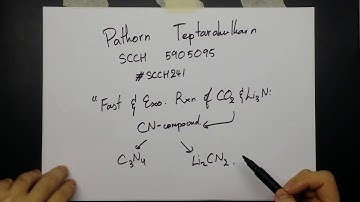 Pathorn Teptarakulkarn
SCCH 5905095
#SCCH241
"Fast & Exo. Rxn of CO2 & Li3N:
CN-compound
C3N4 Li2CN2.